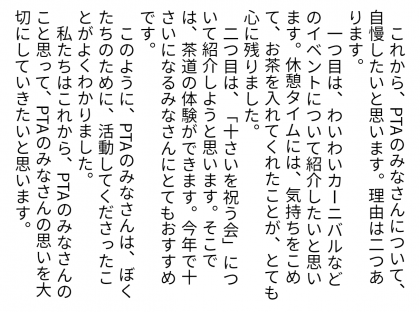 これから、PTAのみなさんについて、
自慢したいと思います。理由は二つあ
ります。
　一つ目は、わいわいカーニバルなど
のイベントについて紹介したいと思い
ます。休憩タイムには、気持ちをこめ
て、お茶を入れてくれたことが、とても
心に残りました。
　二つ目は、「十さいを祝う会」につ
いて紹介しようと思います。そこで
は、茶道の体験ができます。今年で十
さいになるみなさんにとてもおすすめ
です。
　このように、PTAのみなさんは、ぼく
たちのために、活動してくださったこ
とがよくわかりました。
　私たちはこれから、PTAのみなさんの
こと思って、PTAのみなさんの思いを大
切にしていきたいと思います。